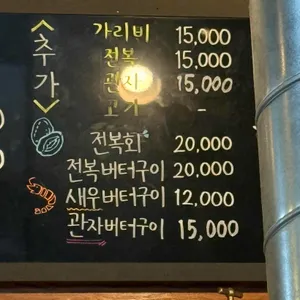 <추가>
가리비 15,000
전복 15,000
관자 15,000
고기 -
전복회 20,000
전복버터구이 20,000
새우버터구이 12,000
관자버터구이 15,000